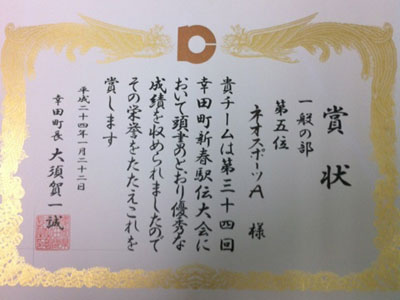 賞状
一般の部
第五位
ネオスポーツA 様
貴チームは第三十四回
幸田町新春駅伝大会に
おいて頭書のとおり優秀な
成績を収められましたので
その栄誉をたたえこれを
賞します
平成二十四年一月二十二日
幸田町長 大須賀一誠